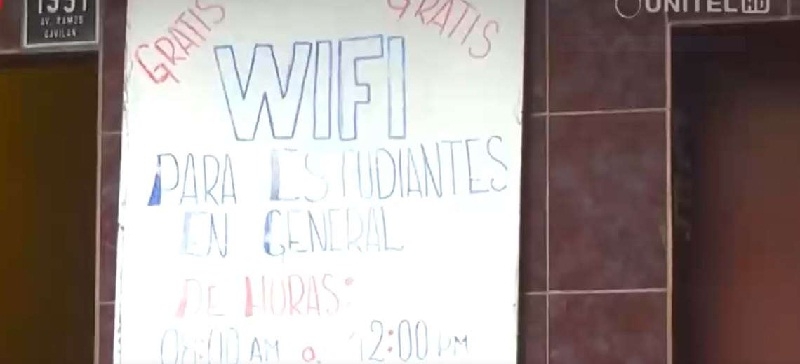 1391
AV. RAMON
GAVILAN
UNITEL HD
GRATIS GRATIS
WIFI
PARA ESTUDIANTES
EN GENERAL
DE HORAS:
08:00 AM a 12:00 PM